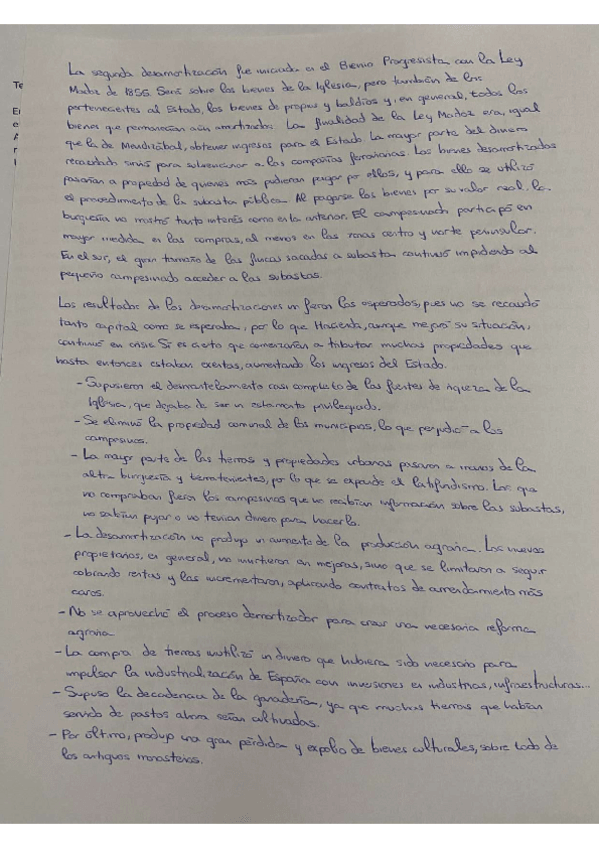 La segunda desamortización fue iniciada en el Bienio Progresista con la Ley
Madoz de 1855. Será sobre los bienes de la Iglesia, pero también de los
pertenecientes al Estado, los bienes de propios y baldíos y, en general, todos los
bienes que permanecían aún amortizados. La finalidad de la Ley Madoz era, igual
que la de Mendizábal, obtener ingresos para el Estado. La mayor parte del dinero
recaudado sirvió para subvencionar a las compañías ferroviarias. Los bienes desamortizados
pasarían a propiedad de quienes más pudieran pagar por ellos, y para ello se utilizó
el procedimiento de la subasta pública. Al pagarse los bienes por su valor real, la
burguesía no mostró tanto interés como en la anterior. El campesinado participó en
mayor medida en las compras, al menos en las zonas centro y norte peninsular.
En el sur, el gran tamaño de las fincas sacadas a subasta continuó impidiendo al
pequeño campesinado acceder a las subastas.
Los resultados de las desamortizaciones no fueron los esperados, pues no se recaudó
tanto capital como se esperaba, por lo que Hacienda, aunque mejoró su situación,
continuó en crisis. Si es cierto que comenzarían a tributar muchas propiedades que
hasta entonces estaban exentas, aumentando los ingresos del Estado.
- Supusieron el desmantelamiento casi completo de las fuentes de riqueza de la
Iglesia, que dejaba de ser un estamento privilegiado.
- Se eliminó la propiedad comunal de los municipios, lo que perjudicó a los
campesinos.
- La mayor parte de las tierras y propiedades urbanas pasaron a manos de la
alta burguesía y terratenientes, por lo que se expande el latifundismo. Los que
no compraban fueron los campesinos que no recibían información sobre las subastas,
no sabían pujar o no tenían dinero para hacerlo.
- La desamortización no produjo un aumento de la producción agraria. Los nuevos
propietarios, en general, no invirtieron en mejoras, sino que se limitaron a seguir
cobrando rentas y las incrementaron, aplicando contratos de arrendamiento más
caros.
- No se aprovechó el proceso demortizador para crear una necesaria reforma
agraria
- La compra de tierras inutilizó un dinero que hubiera sido necesario para
impulsar la industrialización de España con inversiones en industrias, infraestructuras...
- Supuso la decadencia de la ganadería, ya que muchas tierras que habían
servido de pastos ahora serían cultivadas.
- Por último, produjo una gran pérdida y expolio de bienes culturales, sobre todo de
los antiguos monasterios.